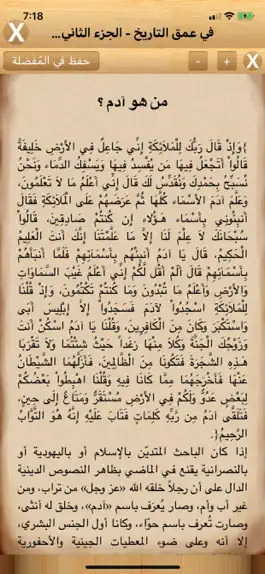 7:18
X
في عمق التاريخ - الجزء الثاني...
حفظ في المُفضلة
-
+
X
من هو آدم ؟
}وَإِذْ قَالَ رَبُّكَ لِلْمَلاَئِكَةِ إِنِّي جَاعِلٌ فِي الأَرْضِ خَلِيفَةً
قَالُواْ أَتَجْعَلُ فِيهَا مَن يُفْسِدُ فِيهَا وَيَسْفِكُ الدِّمَاء وَنَحْنُ
نُسَبِّحُ بِحَمْدِكَ وَنُقَدِّسُ لَكَ قَالَ إِنِّي أَعْلَمُ مَا لاَ تَعْلَمُونَ،
وَعَلَّمَ آدَمَ الأَسْمَاء كُلَّهَا ثُمَّ عَرَضَهُمْ عَلَى الْمَلاَئِكَةِ فَقَالَ
أَنبِئُونِي بِأَسْمَاء هَـؤُلاء إِن كُنتُمْ صَادِقِينَ، قَالُواْ
سُبْحَانَكَ لاَ عِلْمَ لَنَا إِلاَّ مَا عَلَّمْتَنَا إِنَّكَ أَنتَ الْعَلِيمُ
الْحَكِيمُ، قَالَ يَا آدَمُ أَنبِئْهُم بِأَسْمَائِهِمْ فَلَمَّا أَنبَأَهُمْ
بِأَسْمَائِهِمْ قَالَ أَلَمْ أَقُل لَّكُمْ إِنِّي أَعْلَمُ غَيْبَ السَّمَاوَاتِ
وَالأَرْضِ وَأَعْلَمُ مَا تُبْدُونَ وَمَا كُنتُمْ تَكْتُمُونَ، وَإِذْ قُلْنَا
لِلْمَلاَئِكَةِ اسْجُدُواْ لآدَمَ فَسَجَدُواْ إِلاَّ إِبْلِيسَ أَبَى
وَاسْتَكْبَرَ وَكَانَ مِنَ الْكَافِرِينَ، وَقُلْنَا يَا آدَمُ اسْكُنْ أَنتَ
وَزَوْجُكَ الْجَنَّةَ وَكُلاَ مِنْهَا رَغَداً حَيْثُ شِئْتُمَا وَلاَ تَقْرَبَا
هَـذِهِ الشَّجَرَةَ فَتَكُونَا مِنَ الْظَّالِمِينَ، فَأَزَلَّهُمَا الشَّيْطَانُ
عَنْهَا فَأَخْرَجَهُمَا مِمَّا كَانَا فِيهِ وَقُلْنَا اهْبِطُواْ بَعْضُكُمْ
لِبَعْضٍ عَدُوٌّ وَلَكُمْ فِي الأَرْضِ مُسْتَقَرٌّ وَمَتَاعٌ إِلَى حِينٍ،
فَتَلَقَّى آدَمُ مِن رَّبِّهِ كَلِمَاتٍ فَتَابَ عَلَيْهِ إِنَّهُ هُوَ التَّوَّابُ
الرَّحِيمُ{.
إذا كان الباحث المتديّن بالإسلام أو باليهودية أو
بالنصرانية يقنع في الماضي بظاهر النصوص الدينية
الدال على أن رجلاً خلقه الله «عز وجل» من تراب، ومن
غير أب وأم، وصار يُعرَف باسم «آدم»، وخلق له أنثى،
وصارت تُعرف باسم حوّاء، وكانا أول الجنس البشري،
إلا أنه وعلى ضوء المعطيات الجينية والأحفورية